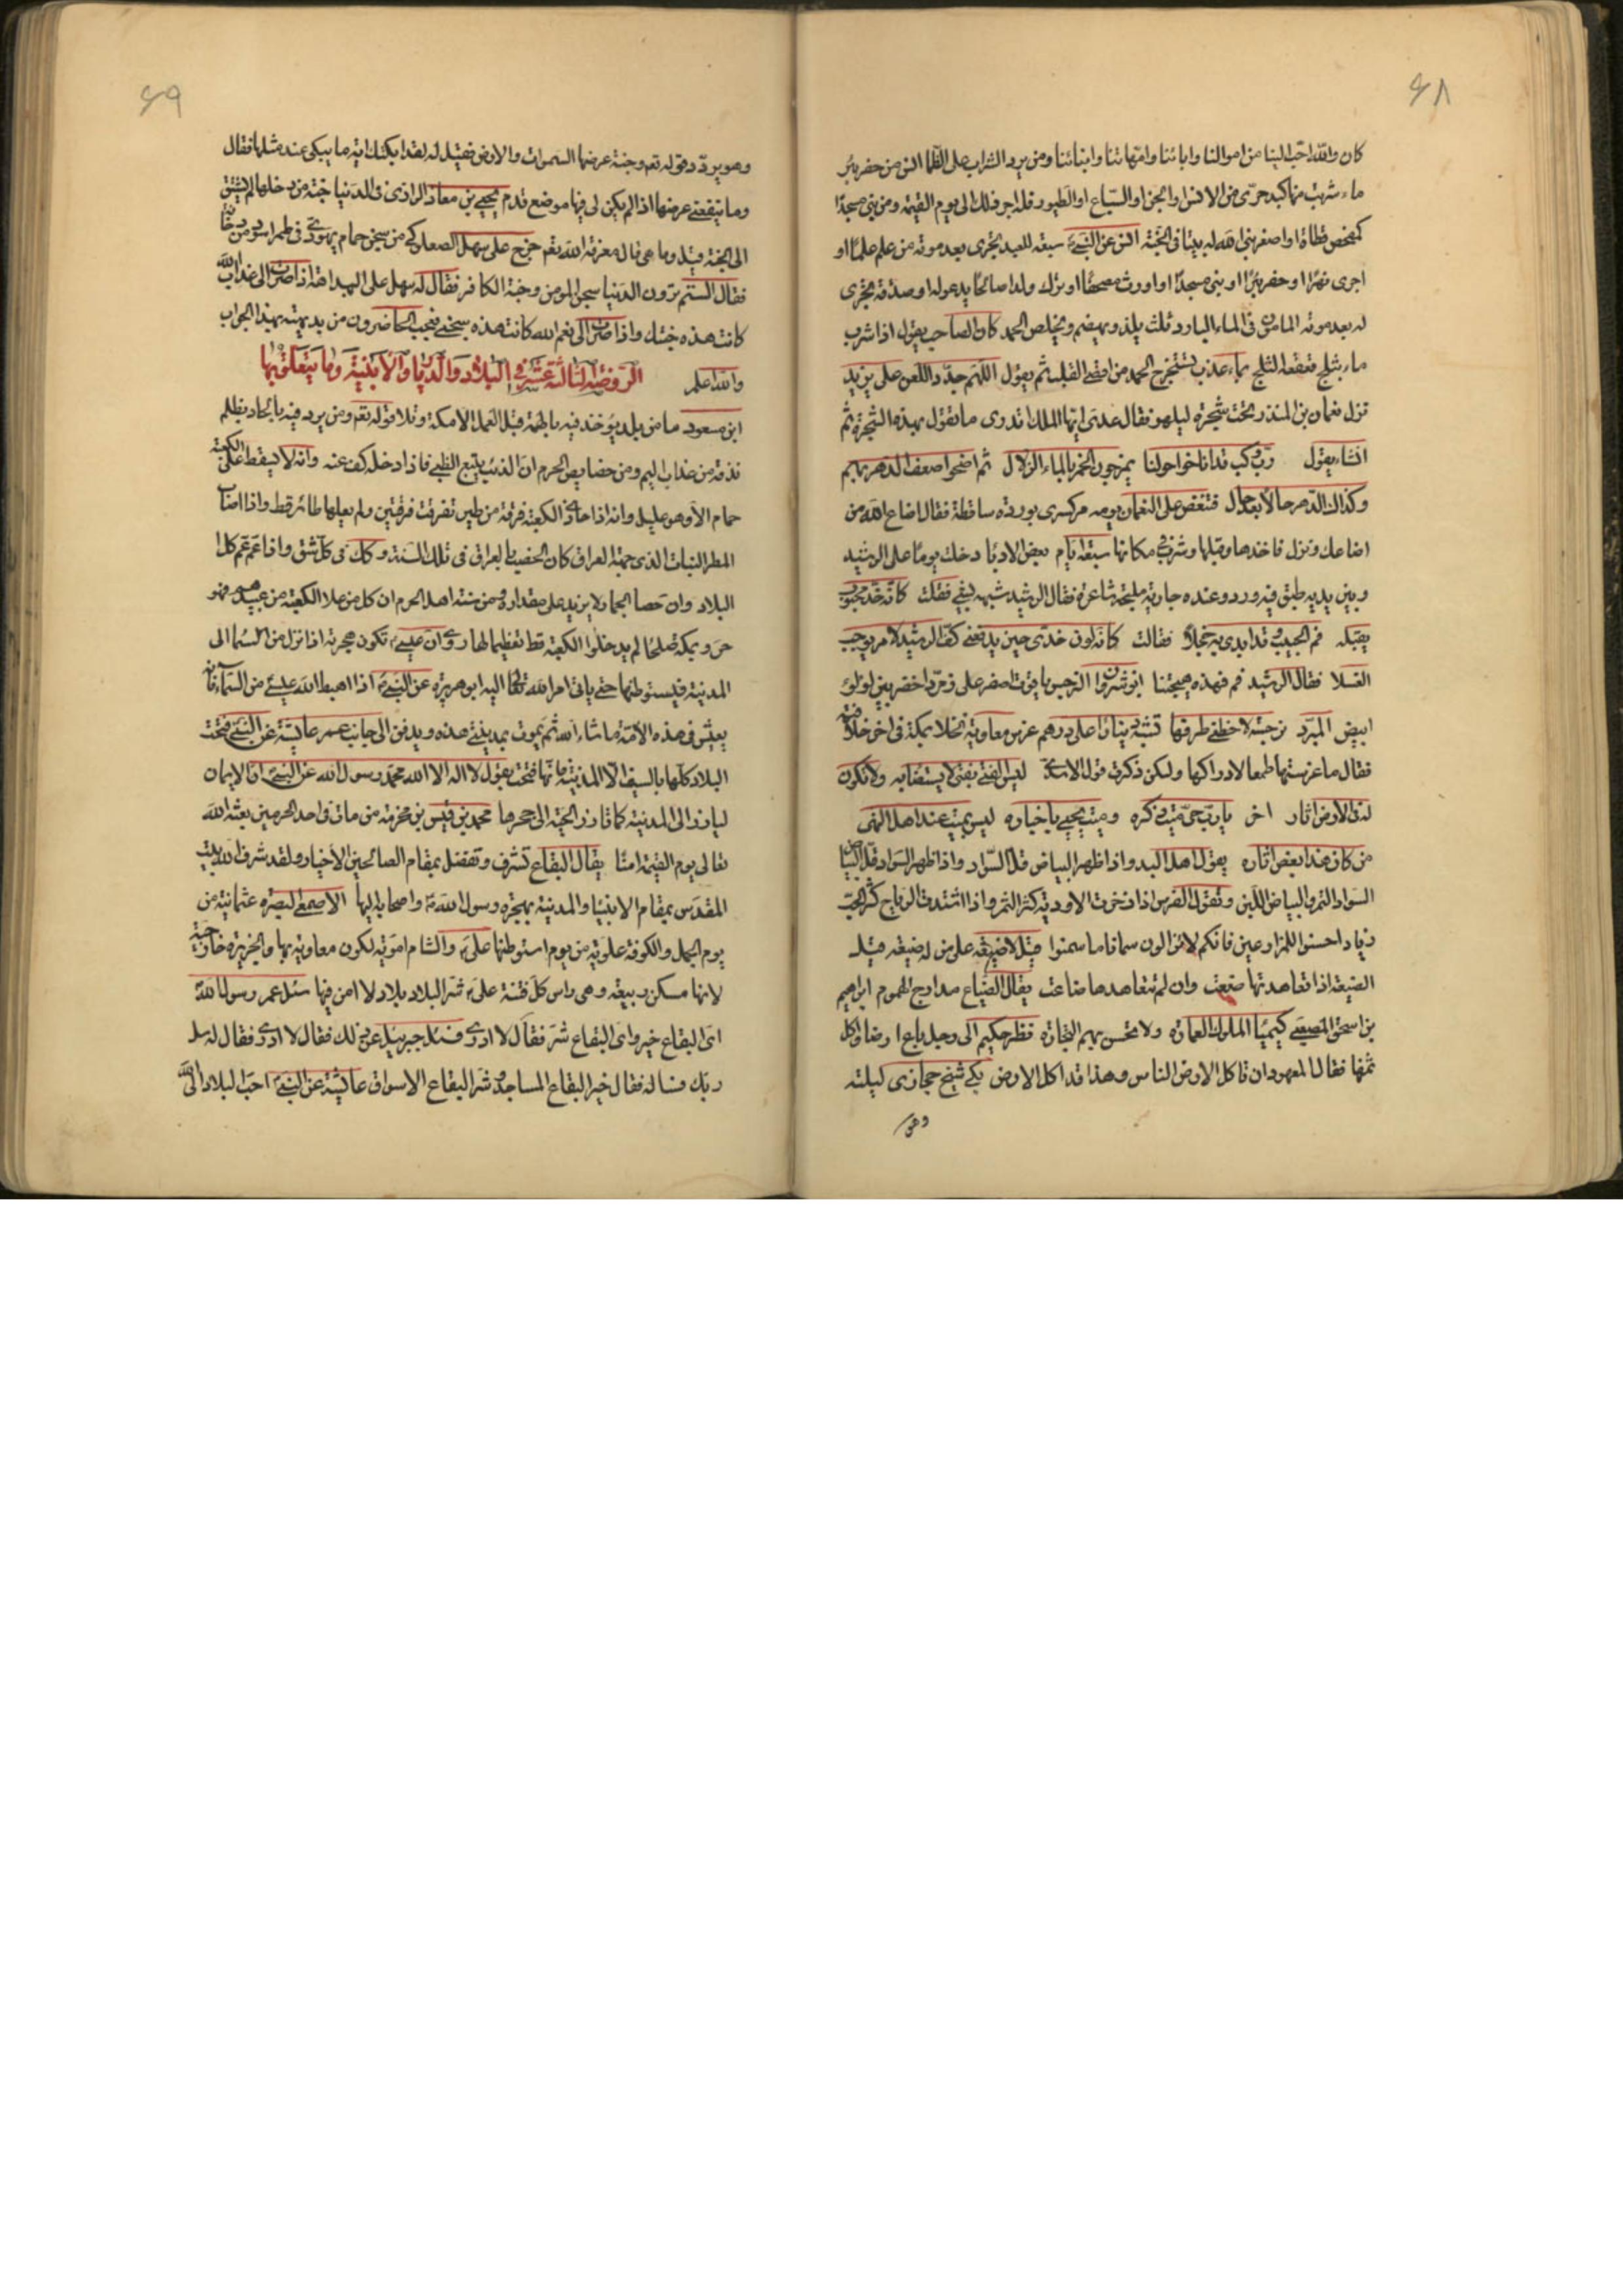 ٤٨
كان والله احب الينا من اموالنا وابائنا وامهاتنا وابنائنا ومن برد الشراب على الظما انس من حفر بئر
ماء شربت منها كبد حرى من الانس والجن او السباع او الطيور فله اجر ذلك الى يوم القيمة ومن بنى مسجدا
كمفحص قطاة او اصغر بنى الله له بيتا فى الجنة انس عن النبى سبعة للعبد تجرى بعد موته من علم علما او
اجرى نهرا او حفر بئرا او بنى مسجدا او اورث مصحفا او ترك ولدا صالحا يدعو له او صدقة تجرى
له بعد موته المامون فى الماء البارد ثلث يلذ ويهضم ويخلص الحمد كان الصاحب يقول اذا شرب
ماء بثلج قعقعة الثلج بماء عذب تستخرج الحمد من اقصى القلب ثم يقول اللهم جدد اللعن على يزيد
نزل نعمان بن المنذر تحت شجرة ليلهو فقال عدى ايها الملك اتدرى ما تقول هذه الشجرة ثم
انشاء يقول رب ركب قد اناخوا حولنا يمزجون الخمر بالماء الزلال ثم اضحوا الدهر بهم
وكذاك الدهر حالا بعد حال فتنغص على النعمان يومه مر كسرى بوردة ساقطة فقال اضاع الله من
اضاعك ونزل فاخذها وقبلها وشرب مكانها سبعة ايام بعض الادبا دخلت يوما على الرشيد
وبين يديه طبق فيه ورد وعنده جارية مليحة شاعرة فقال الرشيد شبهه لى فقلت كانه خد محبوب
يقبله فم الحبيب وقد ابدى به خجلا فقالت كانه لون خدى حين يدفعنى كف الرشيد لامر يوجب
الغسلا فقال الرشيد قم فهذه هيجتنا انوشروان النرجس ياقوت اصفر على زمرد اخضر بين لولؤ
ابيض المبرد نرجسة لاحظنى طرفها تشبه دينارا على درهم غرس معاوية نخلا بمكة فى اخر خلافته
فقال ما غرستها طمعا لادراكها ولكن ذكرت قول الاسدى ليس الفتى بفتى لا يستضا به ولا تكون
له فى الارض اثار اخر يارب حى ميت ذكره وميت يحيى باخباره ليس بميت عند اهل النهى
من كان هذا بعض اثاره يقول اهل اليد واذا ظهر البياض قل السواد واذا ظهر السواد قل البياض
السواد التمر والبياض اللبن وتقول الفرس اذا زخرت الاودية كثر التمر واذا اشتدت الرياح كثر الحب
زياد احسنوا للمزارعين فانكم لا تزالون سمانا ما سمنوا قيل لا ضيعة على من له ضيعة قيل
الضيعة اذا تعاهدتها ضيعت وان لم تتعاهدها ضاعت يقال الضياع مدارج الهموم ابراهيم
بن اسحق المصعبى كيميا الملوك العمارة ولا تحسن بهم التجارة نظر حكيم الى رجل باع ارضا واكل
ثمنها فقال المعهود ان تاكل الارض الناس وهذا قد اكل الارض بكى شيخ حجازى ليلته
وهو
٤٩
وهو يردد قوله تع وجنة عرضها السموات والارض فقيل له لقد ابكتك اية ما يبكى عند مثلها فقال
وما ينفعنى عرضها اذا لم يكن لى فيها موضع قدم يحيى بن معاذ الرازى فى الدنيا جنة من دخلها لم يشتق
الى الجنة قيل وما هى قال معرفة الله تع خرج على سهل الصعلوكى من سجن حمام يهودى فى طمر اسود من دخانه
فقال الستم ترون الدنيا سجن المومن وجنة الكافر فقال له سهل على البداهة اذا صرت الى عذاب الله
كانت هذه جنتك واذا صرت الى نعم الله كانت هذه سجنى فتعجب الحاضرون من بديهته بهذا الجواب
والله اعلم الروضة الثالثة عشرة فى البلاد والديار والابنية وما يتعلق بها
ابن مسعود ما من بلد يؤخذ فيه بالهمة قبل العمل الا مكة وتلا قوله تع ومن يرد فيه بالحاد بظلم
نذقه من عذاب اليم ومن خصايص الحرم ان الذئب يتبع الظبى فاذا دخل كف عنه وانه لا يسقط على الكعبة
حمام الا وهو عليل وانه اذا حاذى الكعبة فرقة من طير تفرقت فرقتين ولم يعلها طائر قط واذا اصاب
المطر البنات الذى جهة العراق كان الخصب بالعراق فى تلك السنة وكذلك فى كل شق واذا عم عم كل
البلاد وان حصا الجمار لا يزيد على مقداره ومن سنة اهل الحرم ان كل من علا الكعبة من عبيدهم فهو
حر وبمكة صلحا لم يدخلوا الكعبة قط تعظيما لها روى ان عيسى تكون هجرته اذا نزل من السما الى
المدينة فيستوطنها حتى ياتى امر الله تعالى اليه ابو هريرة عن النبى اذا اهبط الله عيسى من السماء فانه
يعيش فى هذه الامة ما شاء الله ثم يموت بمدينتى هذه ويدفن الى جانب عمر عايشة عن النبى فتحت
البلاد كلها بالسيف الا المدينة فانها فتحت بقول لا اله الا الله محمد رسول الله عن النبى ان الايمان
ليارز الى المدينة كما تارز الحية الى جحرها محمد بن قيس بن مخرمة من مات فى احد الحرمين بعثه الله
تعالى يوم القيمة امنا يقال البقاع تشرف وتفضل بمقام الصالحين الاخيار ولقد شرف الله بيت
المقدس بمقام الانبيا والمدينة بهجرة رسول الله واصحابه اليها الاصمعى البصرة عثمانية من
يوم الجمل والكوفة علوية من يوم استوطنها على والشام اموية لكون معاوية بها والجزيرة خارجية
لانها مسكن ربيعة وهى راس كل فتنة على شر البلاد بلاد لا امن فيها سئل عمر رسول الله
اى البقاع خير واى البقاع شر فقال لا ادرى فسئل جبريل عن ذلك فقال لا ادرى فقال له سل
ربك فساله فقال خير البقاع المساجد وشر البقاع الاسواق عايشة عن النبى احب البلاد الى الله